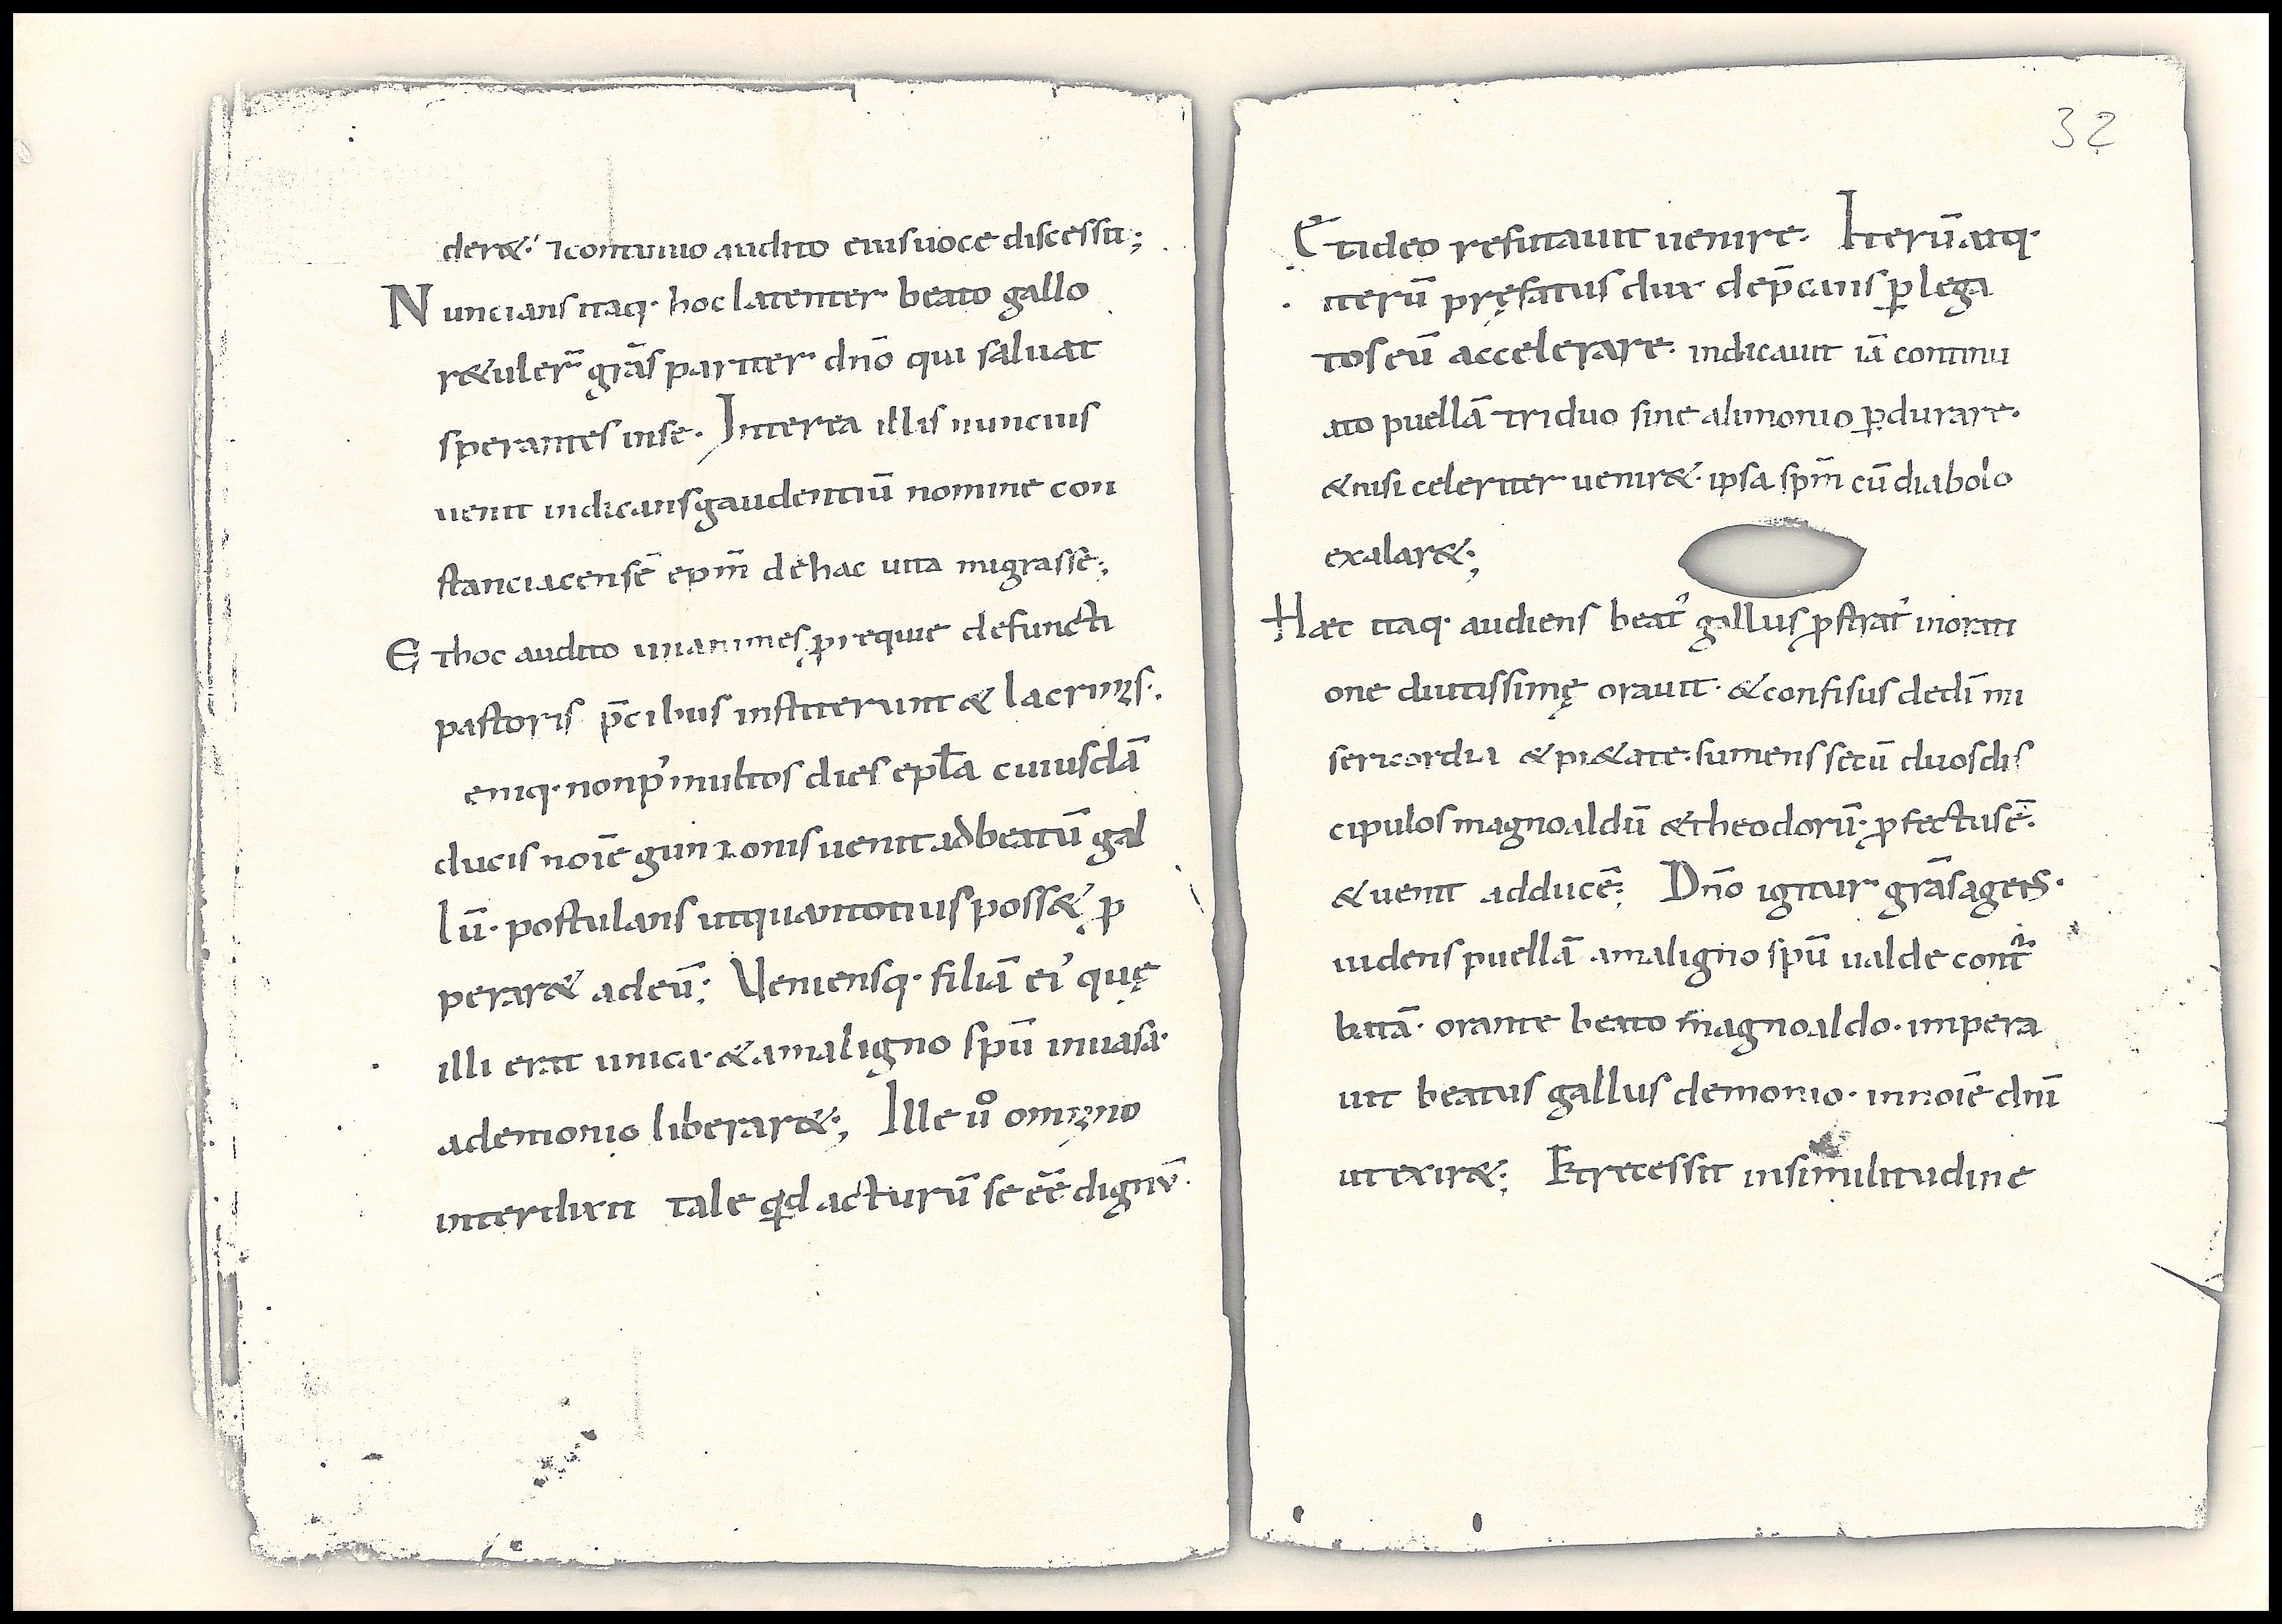 deræ· ⁊continuo audito eiusuoce discessit;
Nuncians itaq· hoc latenter beato gallo
ræuler̄ gr̄as pariter dn̄o qui saluat
sperantes inse· Interea illis nuncius
uenit indicansgaudentiū nomine con
stanciacensē ep̄m dehac uita migrasse;
Ethoc audito unanimes ꝓrequie defuncti
pastoris p̄cibus institerunt & lacrimis·
eniq· nonp᾽multos dies epl̄a cuiusdā
ducis noīe gunzonis uenit adbeatū gal
lū· postulans utquantotius possæ ꝓ
peraræ adeū; Veniensq· filiā ei᾽ quę
illi erat unica· &amaligno sp̄u inuasa·
ademonio liberaræ; Ille ů omnino
interdixit tale qđ acturū se eē̄ dignū·
32
Etideo refutauit uenire· Iterū atq·
iterū pręfatus dux dep̄cans ꝑ lega
tos eū accelerare· indicauit iā continu
ato puellā triduo sine alimonio ꝑdurare·
&nisi celeriter ueniræ· ipsa sp̄m cū diabolo
exalaræ;
Haec itaq· audiens beat᾽ gallus ꝓstrat᾽ inorati
one diutissimę orauit· &confisus dedī mi
sericordia &piætate· sumens secū duosdis
cipulos magnoaldū &theodorū· ꝓfectusē·
&uenit adducē; Dn̄o igitur gr̄as agens·
uidens puellā amaligno sp̄u ualde contͬ
batā· orante beato magnoaldo· impera
uit beatus gallus demonio· innoīe dnī
utexiræ; Etrecessit insimilitudine